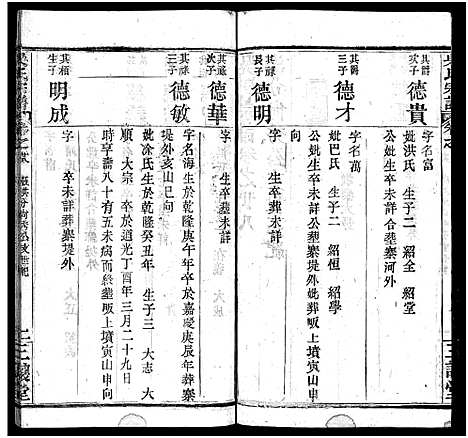 吳氏宗譜
其爵次子
德貴
字名富
妣洪氏 生子二 紹全 紹堂
公妣生卒未詳合塟寨河外
其爵三子
德才
字名萬
妣巴氏 生子二 紹恒 紹學
公妣生卒未詳公塟寨堤外妣葬畈上墳寅山申向
其祿長子
德明
字 生卒葬未詳
三讓堂
其祿次子
德華
字 生卒塟未詳
其祿三子
德敏
字名海生於乾隆庚午年卒於嘉慶庚辰年葬寨
堤外亥山巳向
妣涂氏生於乾隆癸丑年 生子三 大志 大
順 大宗 卒於道光丁酉年三月二十九日
時享壽八十有五未病而終塟畈上墳寅山申向
其相生子
明成
字 卒未詳葬寨堤外
三讓堂